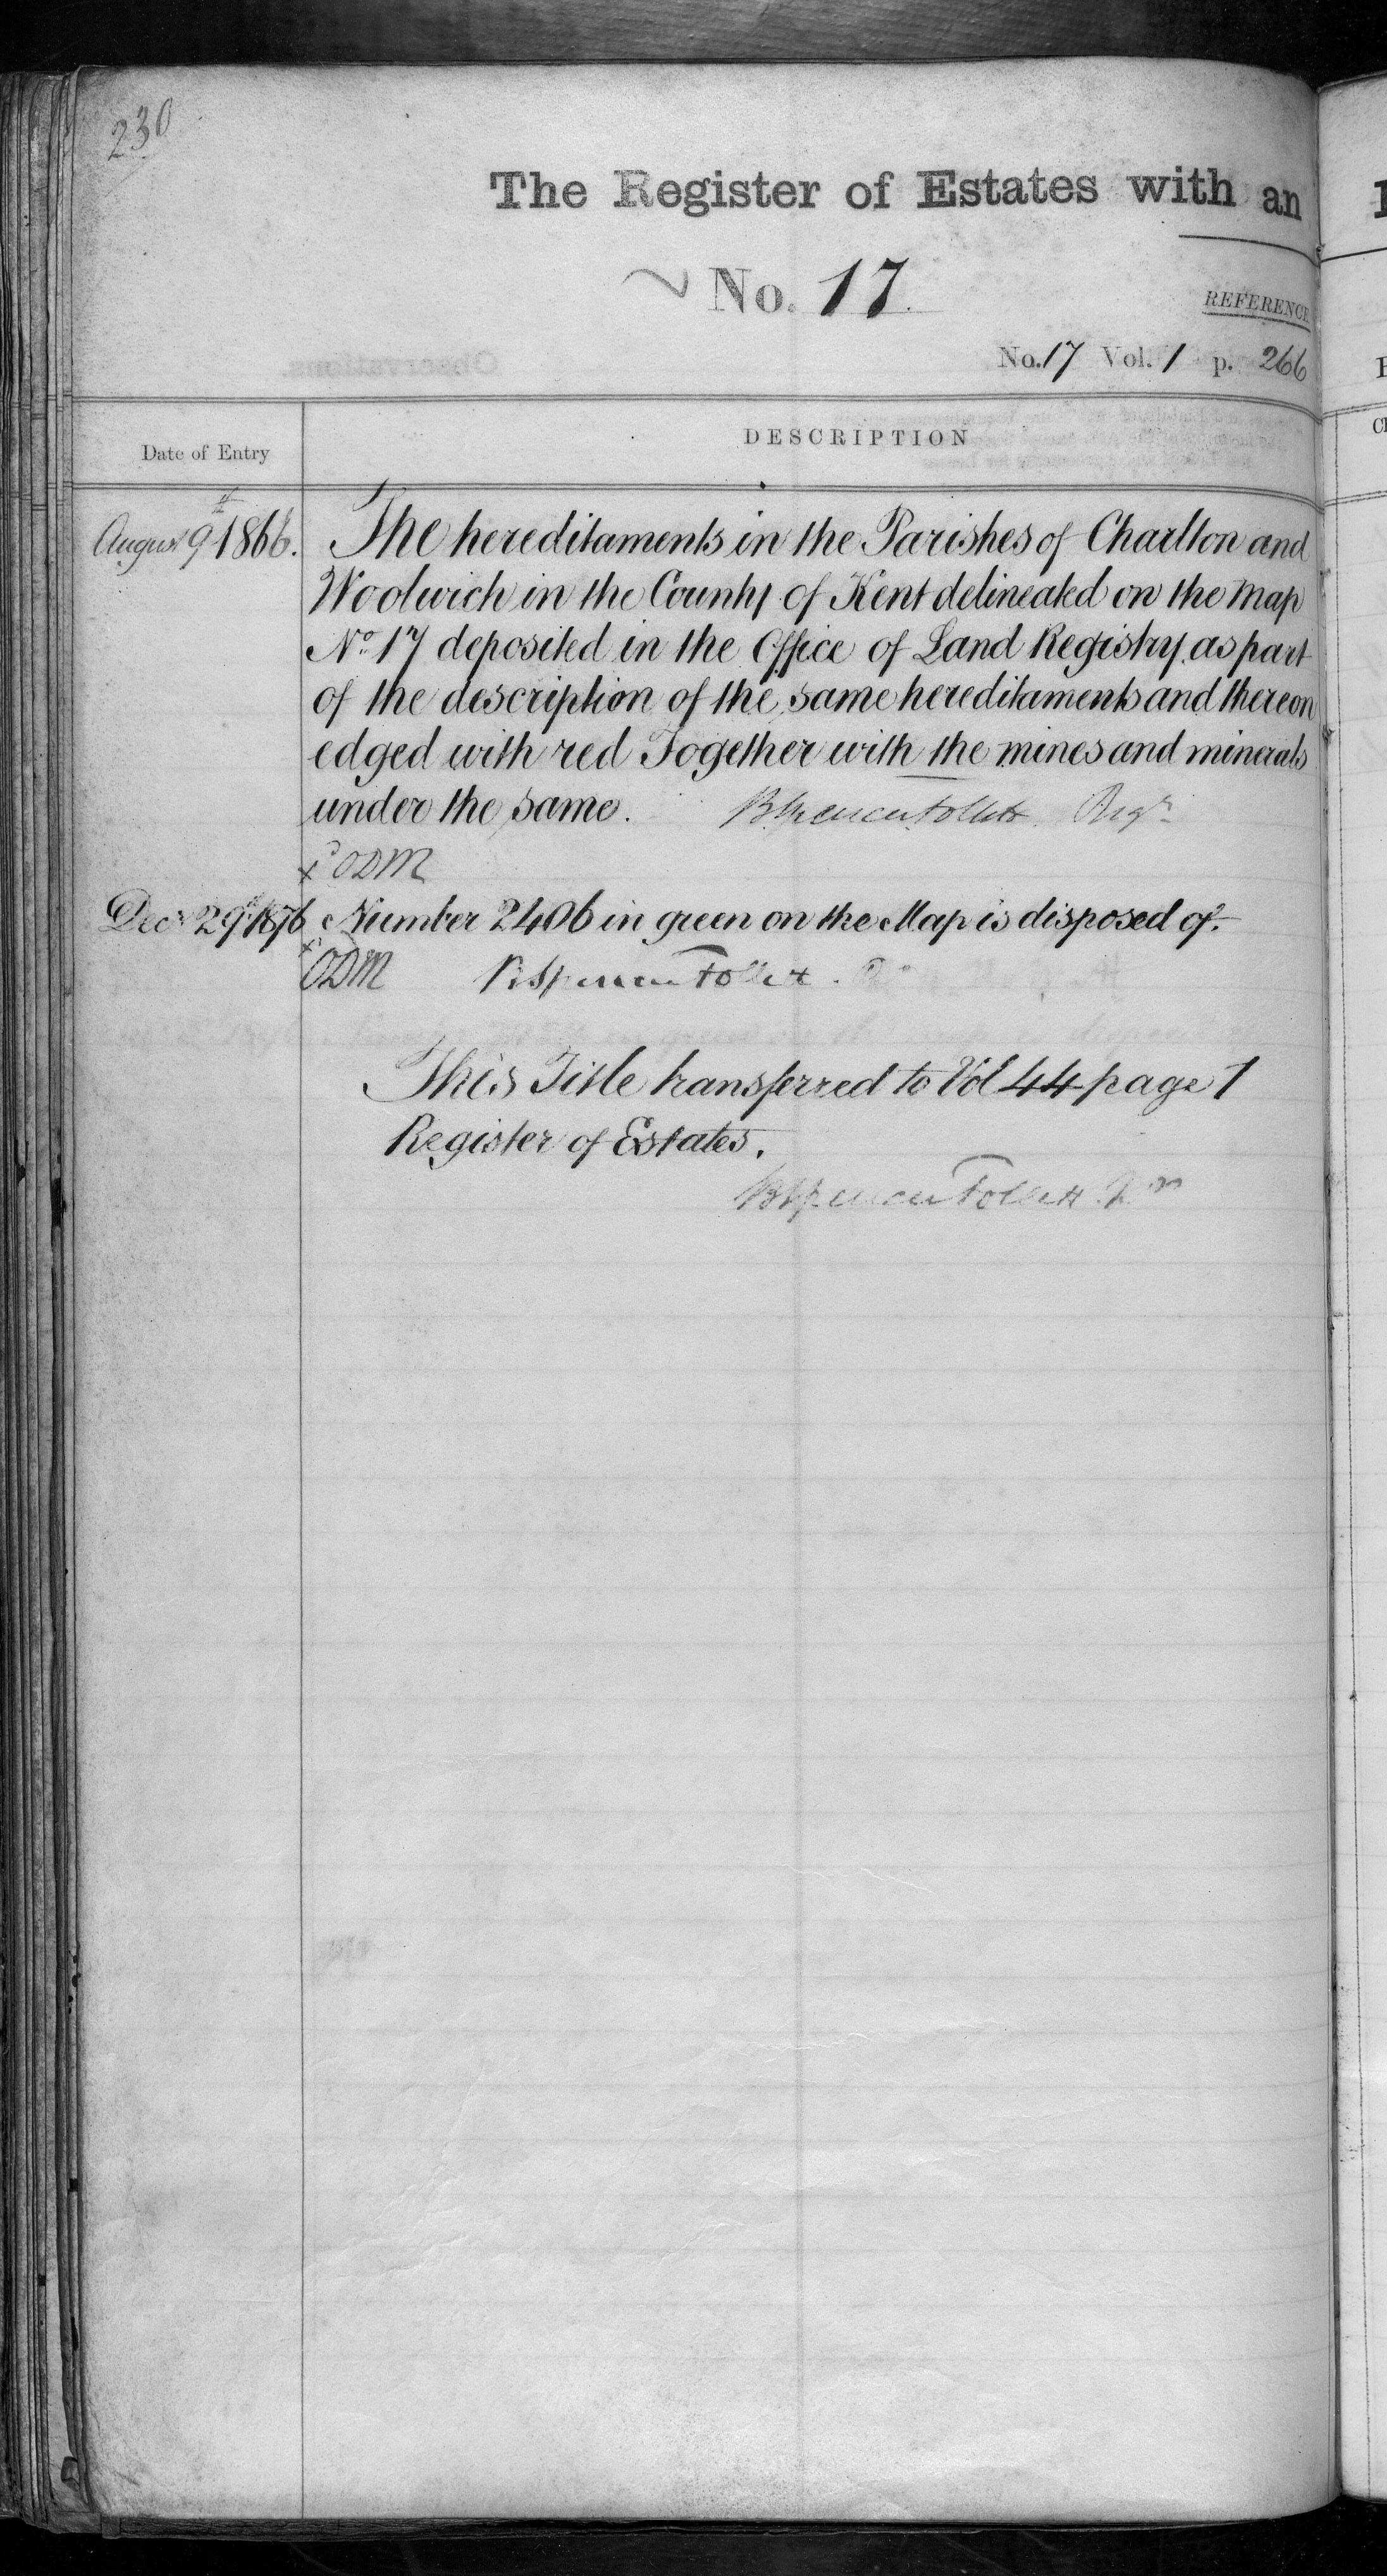 230
The Register of Estates with an
No. 17.
REFERENCE
No. 17 Vol. 1 p. 266
Date of Entry
DESCRIPTION
August 9th 1866. The hereditaments in the Parishes of Charlton and
Woolwich in the County of Kent delineated on the Map
No. 17 deposited in the Office of Land Registry as part
of the description of the same hereditaments and thereon
edged with red Together with the mines and minerals
under the same. B Spencer Follett Regr
x ODM
Decr 29th 1876 Number 2406 in green on the Map is disposed of.
x ODM B Spencer Follett
This Title transferred to Vol 44 page 1
Register of Estates.
B Spencer Follett